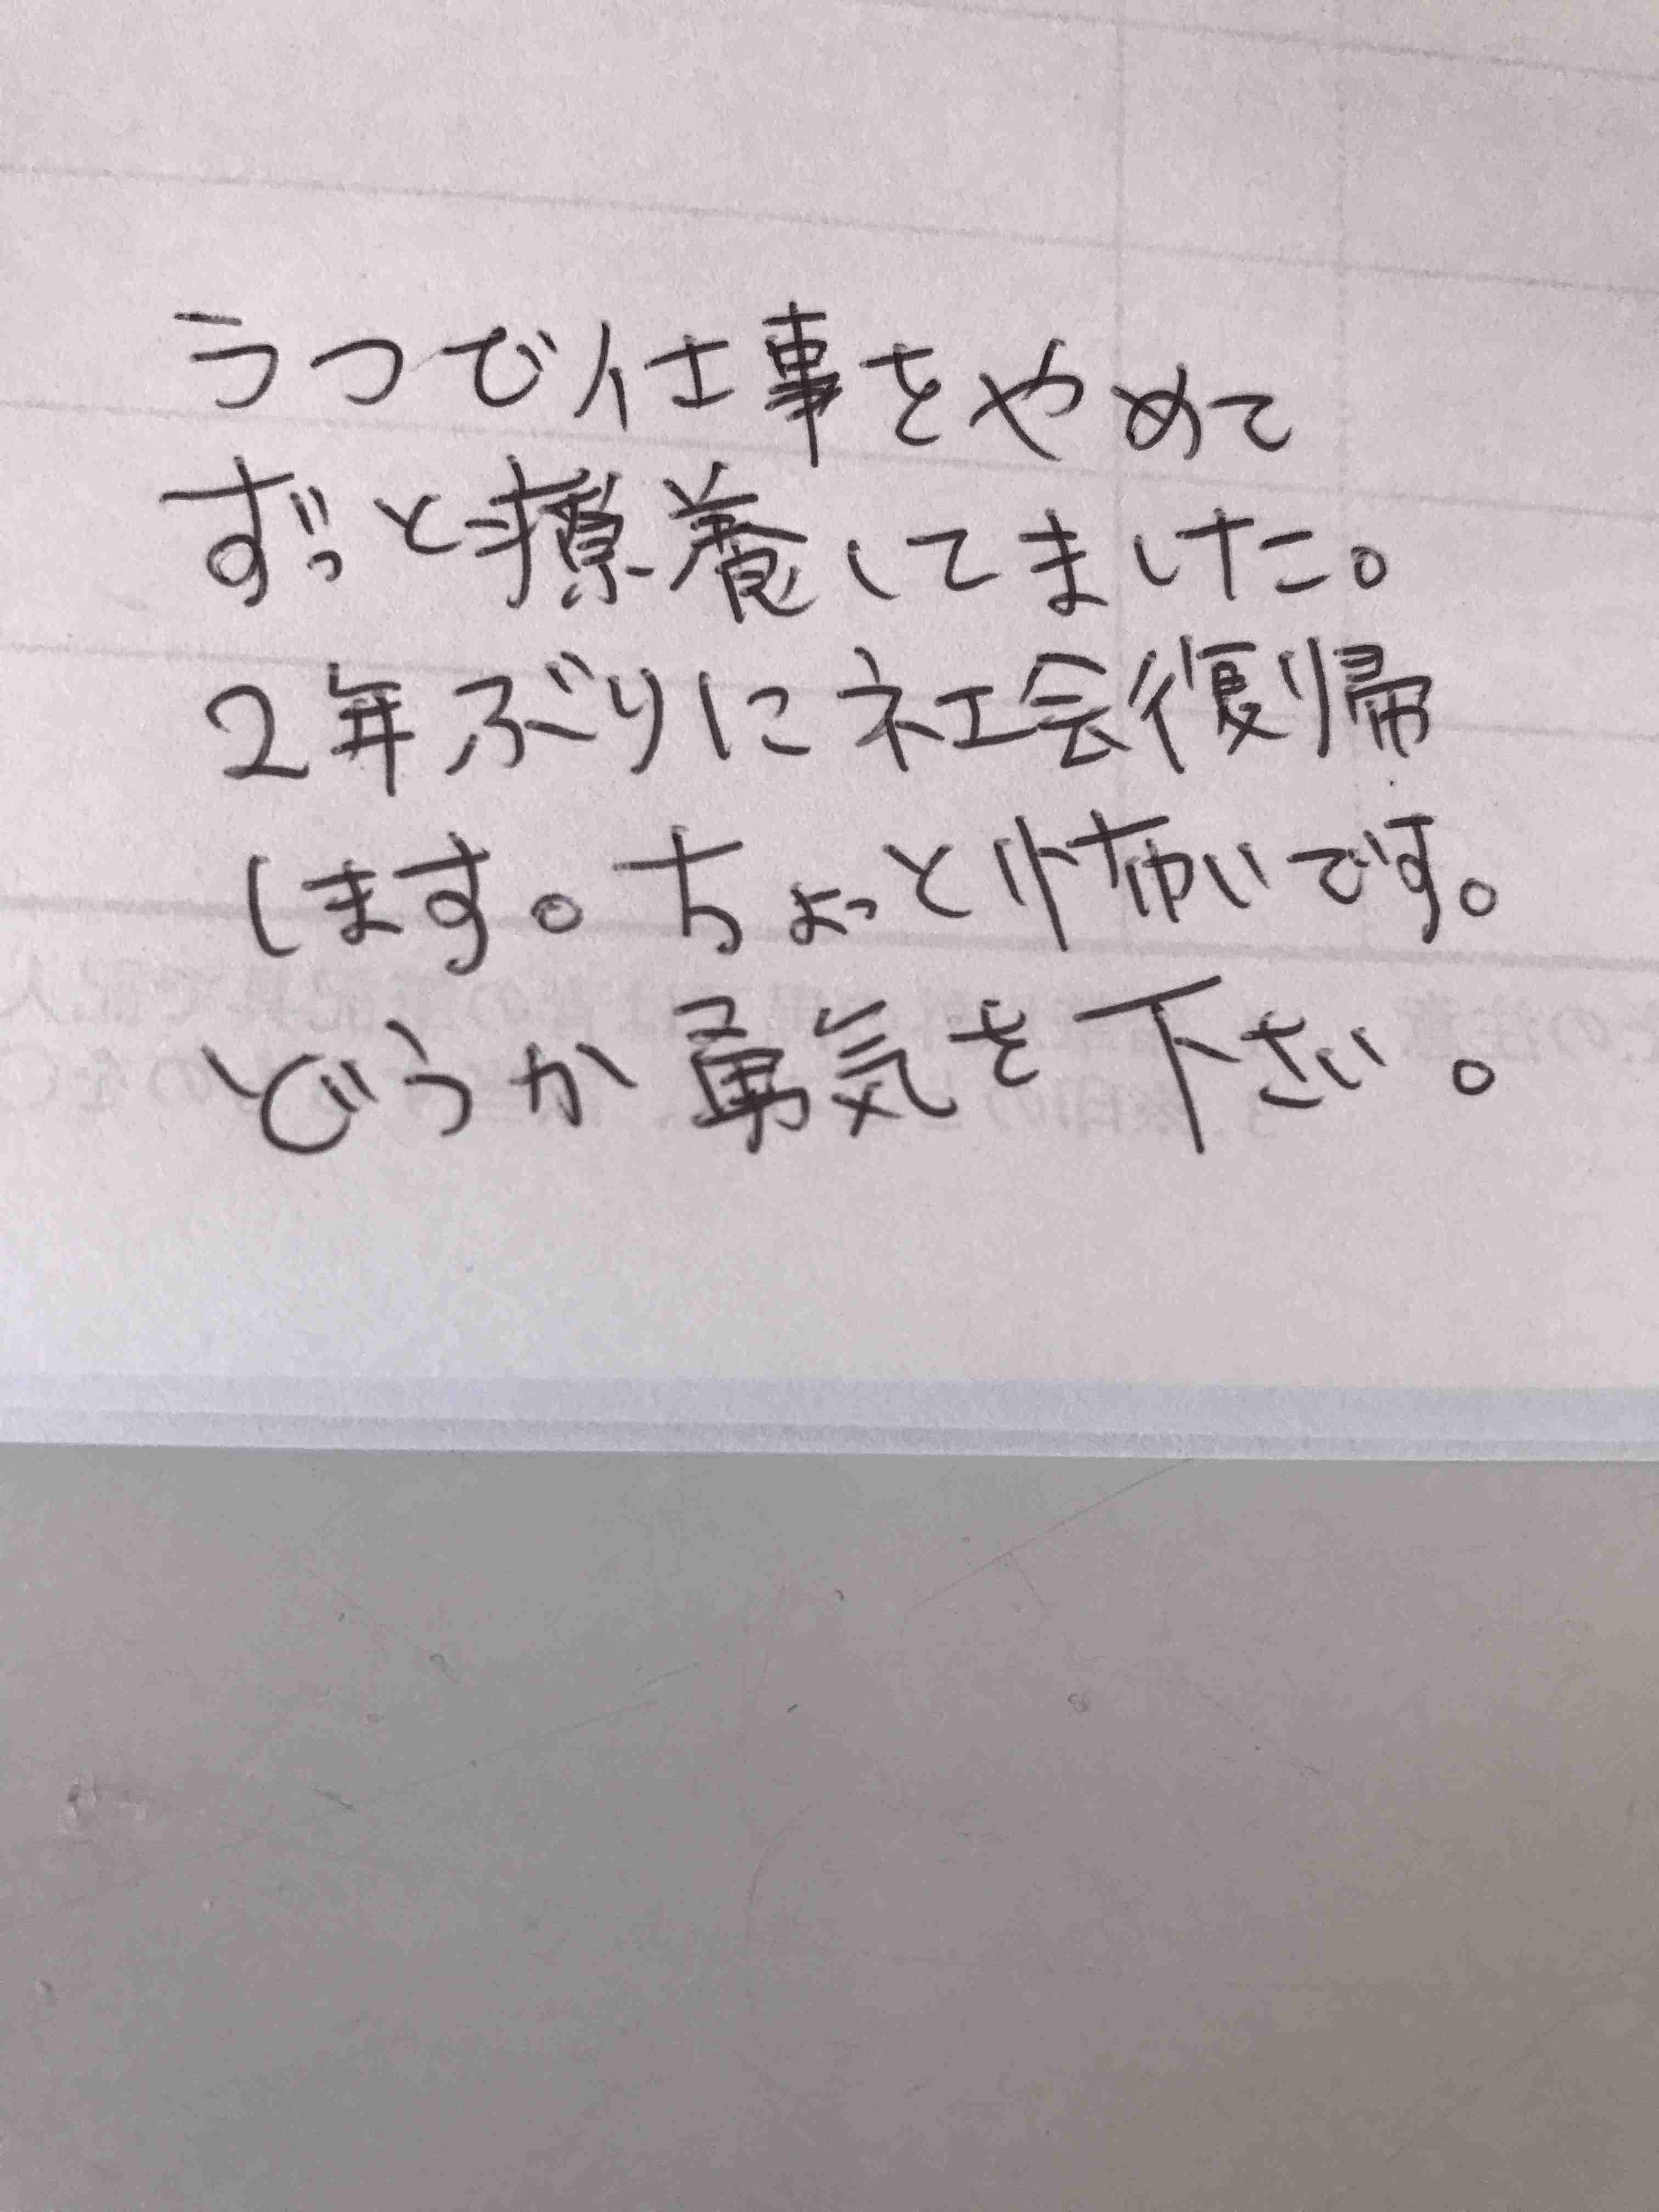 うつで仕事をやめて
ずっと療養してました。
2年ぶりに社会復帰
します。ちょっと怖いです。
どうか勇気を下さい。